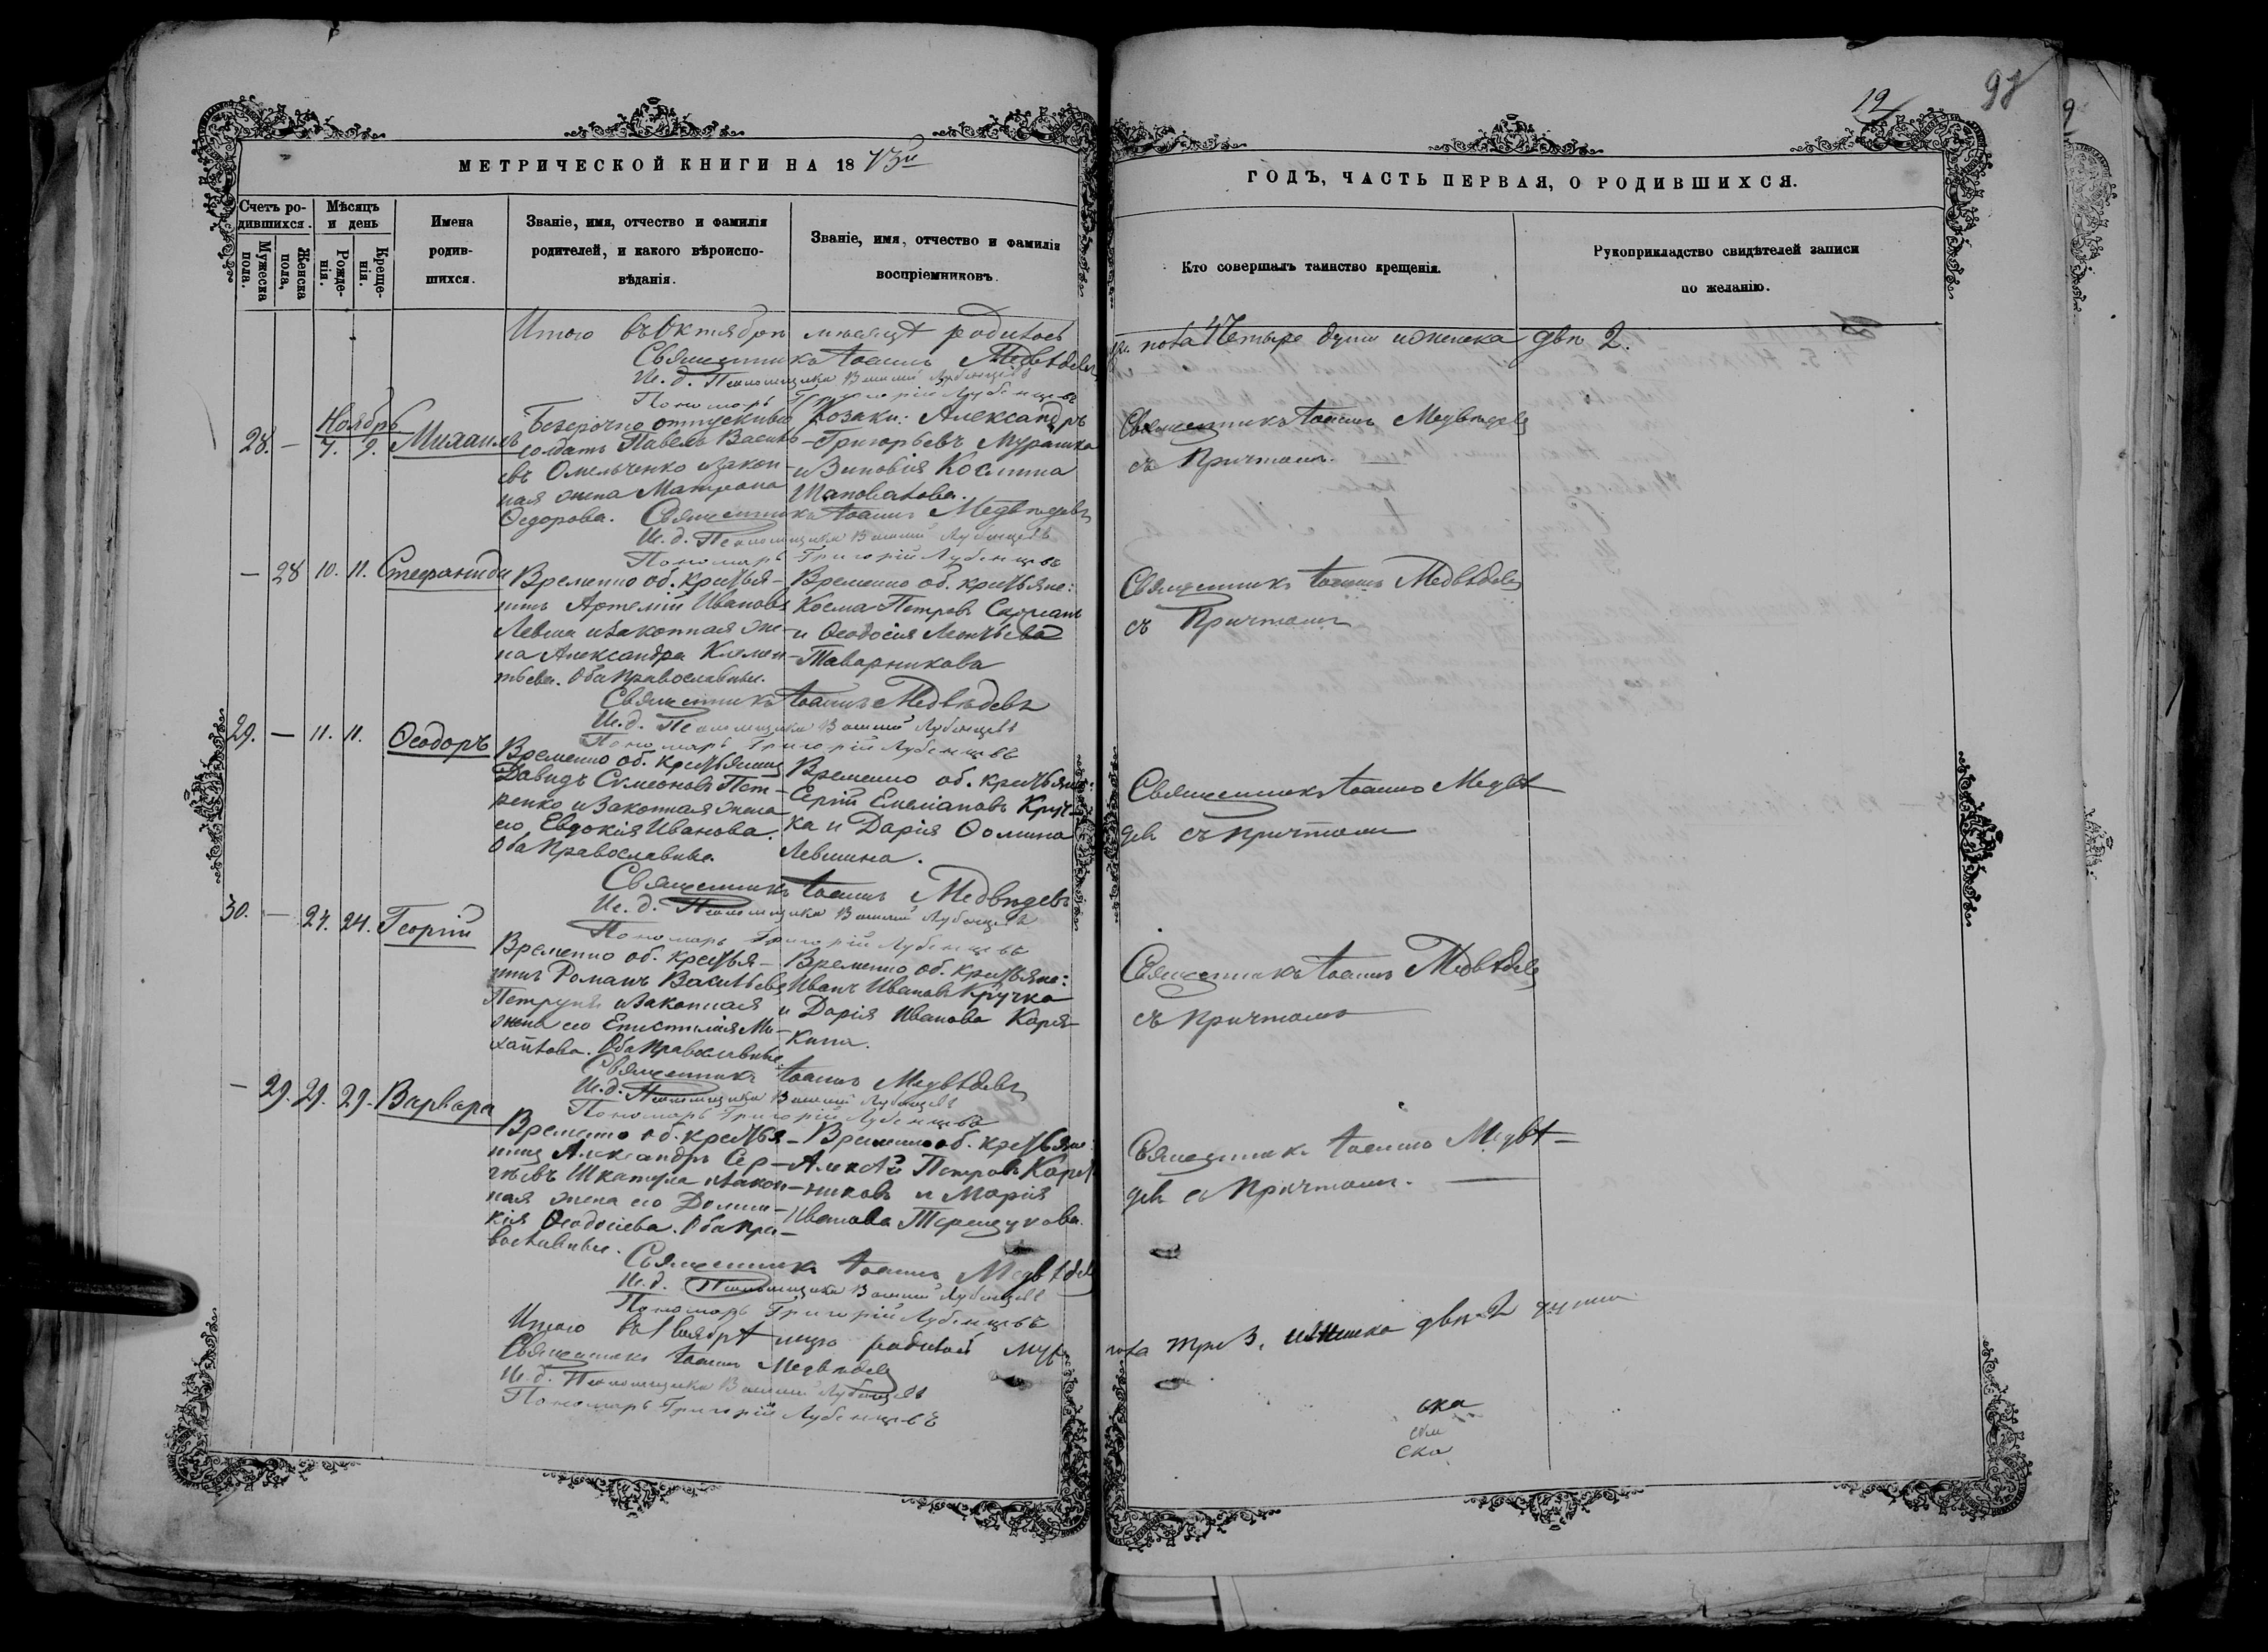 19
98
МЕТРИЧЕСКОЙ КНИГИ НА 1873й
ГОДЪ, ЧАСТЬ ПЕРВАЯ, О РОДИВШИХСЯ.
Счетъ ро-
дившихся.
Мужеска
пола.
Женска
пола,
Мѣсяцъ
и день
Рожде-
нія.
Креще-
нія.
Имена
родив-
шихся.
Званіе, имя, отчество и фамилія
родителей, и какого вѣроиспо-
вѣданія.
Званіе, имя, отчество и фамилія
воспріемниковъ.
Кто совершалъ таинство крещенія.
Рукоприкладство свидѣтелей записи
по желанію.
Итого въ Октябрѣ мѣсяцѣ родилось
пола 4 Четыре души и женска двѣ 2.
Священникъ Іоаннъ Медвѣдевъ
И. д. Псаломщика Василій Лубенцевъ
Пономарь Григорій Лубенцевъ
Ноябрь
28. — 7. 9. Михаилъ
Безсрочно отпускной
солдатъ Павелъ Василь-
евъ Омельченко и закон-
ная жена Матрона
Ѳедорова.
Козаки: Александръ
Григорьевъ Мурашка
и Зиновія Космина
Шаповалова.
Священникъ Іоаннъ Медвѣдевъ
съ Причтомъ.
Священникъ Іоаннъ Медвѣдевъ
И. д. Псаломщика Василій Лубенцевъ
Пономарь Григорій Лубенцевъ
— 28 10. 11. Стефанида
Временно об. крестья-
нинъ Артемій Ивановъ
Левша и законная же-
на Александра Клемен-
тьева. Оба православные.
Временно об. крестьяне:
Косма Петровъ
и Ѳеодосія
Таварникова
Священникъ Іоаннъ Медвѣдевъ
съ Причтомъ
Священникъ Іоаннъ Медвѣдевъ
И. д. Псаломщика Василій Лубенцевъ
Пономарь Григорій Лубенцевъ
29. — 11. 11. Ѳеодоръ
Временно об. крестьянинъ
Давидъ Симеоновъ Пет-
ренко и законная жена
его Евдокія Иванова.
Оба православные.
Временно об. крестьяне:
Сергій Емеліановъ Круч-
ка и Дарія Ѳомина
Левшина.
Священникъ Іоаннъ Медвѣ-
девъ съ причтомъ
Священникъ Іоаннъ Медвѣдевъ
И. д. Псаломщика Василій Лубенцевъ
Пономарь Григорій Лубенцевъ
30. — 24. 24. Георгій
Временно об. крестья-
нинъ Романъ Васильевъ
Петруня и законная
жена его Епистимія Ми-
хайлова. Оба православные.
Временно об. крестьяне:
Иванъ Ивановъ Кручка
и Дарія Иванова Коря-
кина.
Священникъ Іоаннъ Медвѣдевъ
съ причтомъ
Священникъ Іоаннъ Медвѣдевъ
И. д. Псаломщика Василій Лубенцевъ
Пономарь Григорій Лубенцевъ
— 29. 29. 29. Варвара
Временно об. крестья-
нинъ Александръ Сер-
гѣевъ Шкатула и закон-
ная жена его Домни-
кія Ѳеодосіева. Оба пра-
вославные.
Временно об. крестьяне:
Алексѣй Петровъ
и Марія
Иванова Терещукова.
Священникъ Іоаннъ Медвѣ-
девъ съ Причтомъ.
Священникъ Іоаннъ Медвѣдевъ
И. д. Псаломщика Василій Лубенцевъ
Пономарь Григорій Лубенцевъ
Итого въ Ноябрѣ мцѣ родилось муж.
пола три 3, и женска двѣ 2 души
Священникъ Іоаннъ Медвѣдевъ
И. д. Псаломщика Василій Лубенцевъ
Пономарь Григорій Лубенцевъ
ска
ска
ска